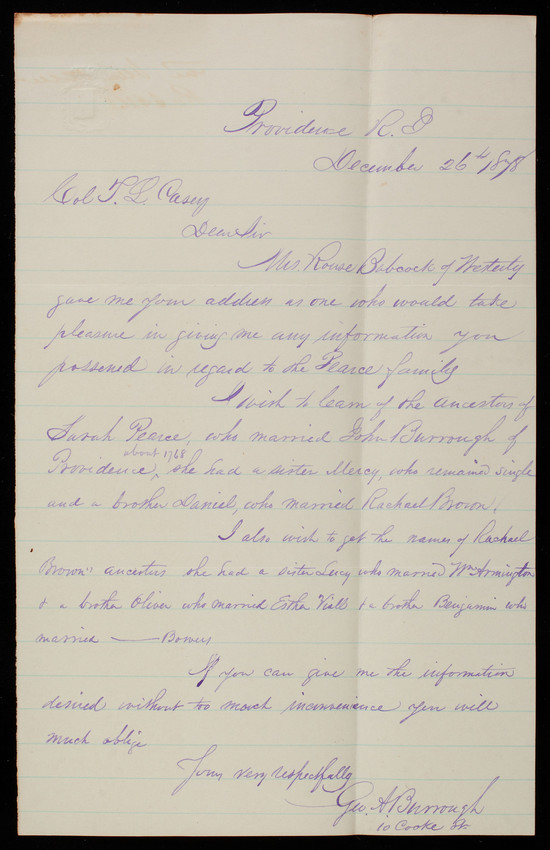 Providence R. I
December 26th 1878
Col T. L. Casey
Dear Sir
Mrs. Rouse Babcock of Westerly
gave me your address as one who would take
pleasure in giving me any information you
possessed in regard to the Pearce family
I wish to learn of the ancestors of
Sarah Pearce, who married John Burrough of
about 1768
Providence, she had a sister Mercy, who remained single
and a brother Daniel, who married Rachael Brown.
I also wish to get the names of Rachael
Brown's ancestors she had a sister Lucy who married Wm Armington
& a brother Oliver who married Esther Viall & a brother Benjamin who
married —— Bowers
If you can give me the information
desired without too much inconvenience you will
much oblige
Yours very respectfully
Geo. A Burrough
10 Cooke St.